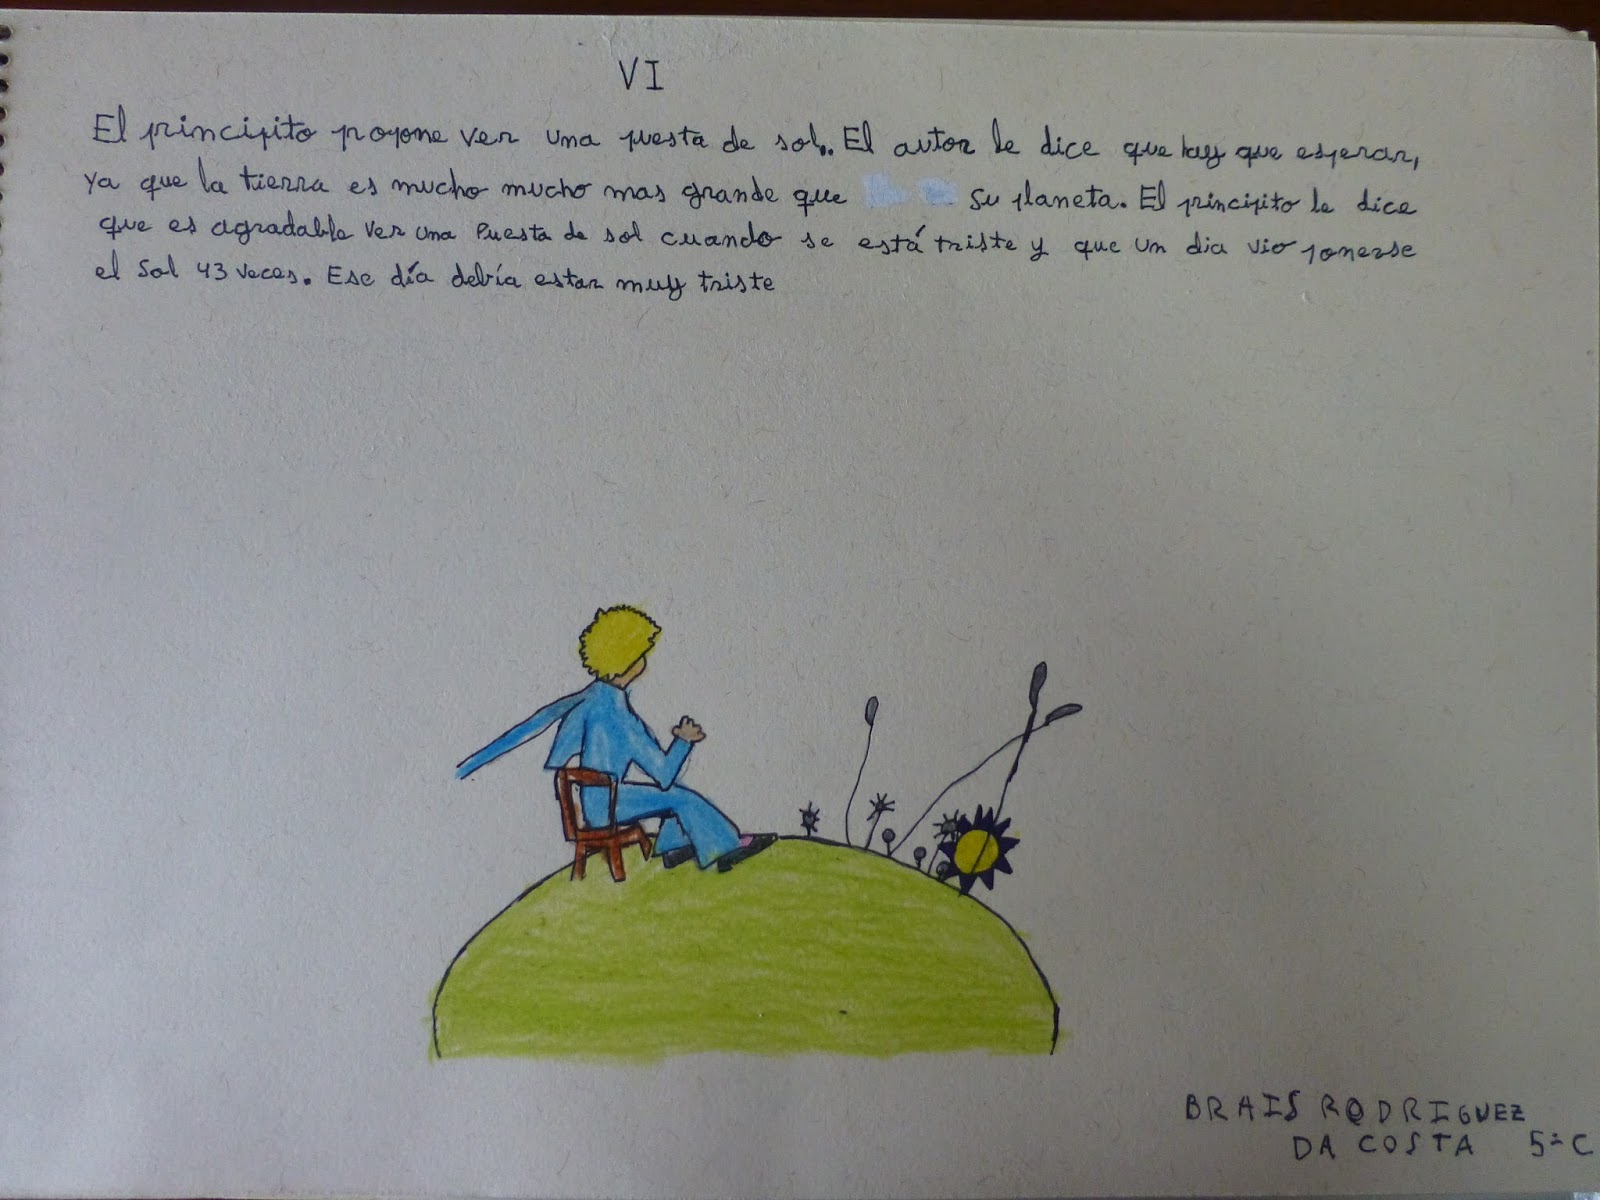 VI
El principito propone ver una puesta de sol. El autor le dice que hay que esperar,
ya que la tierra es mucho mucho mas grande que su planeta. El principito le dice
que es agradable ver una Puesta de sol cuando se está triste y que un dia vio ponerse
el Sol 43 veces. Ese día debría estar muy triste
BRAIS RODRIGUEZ
DA COSTA 5º C